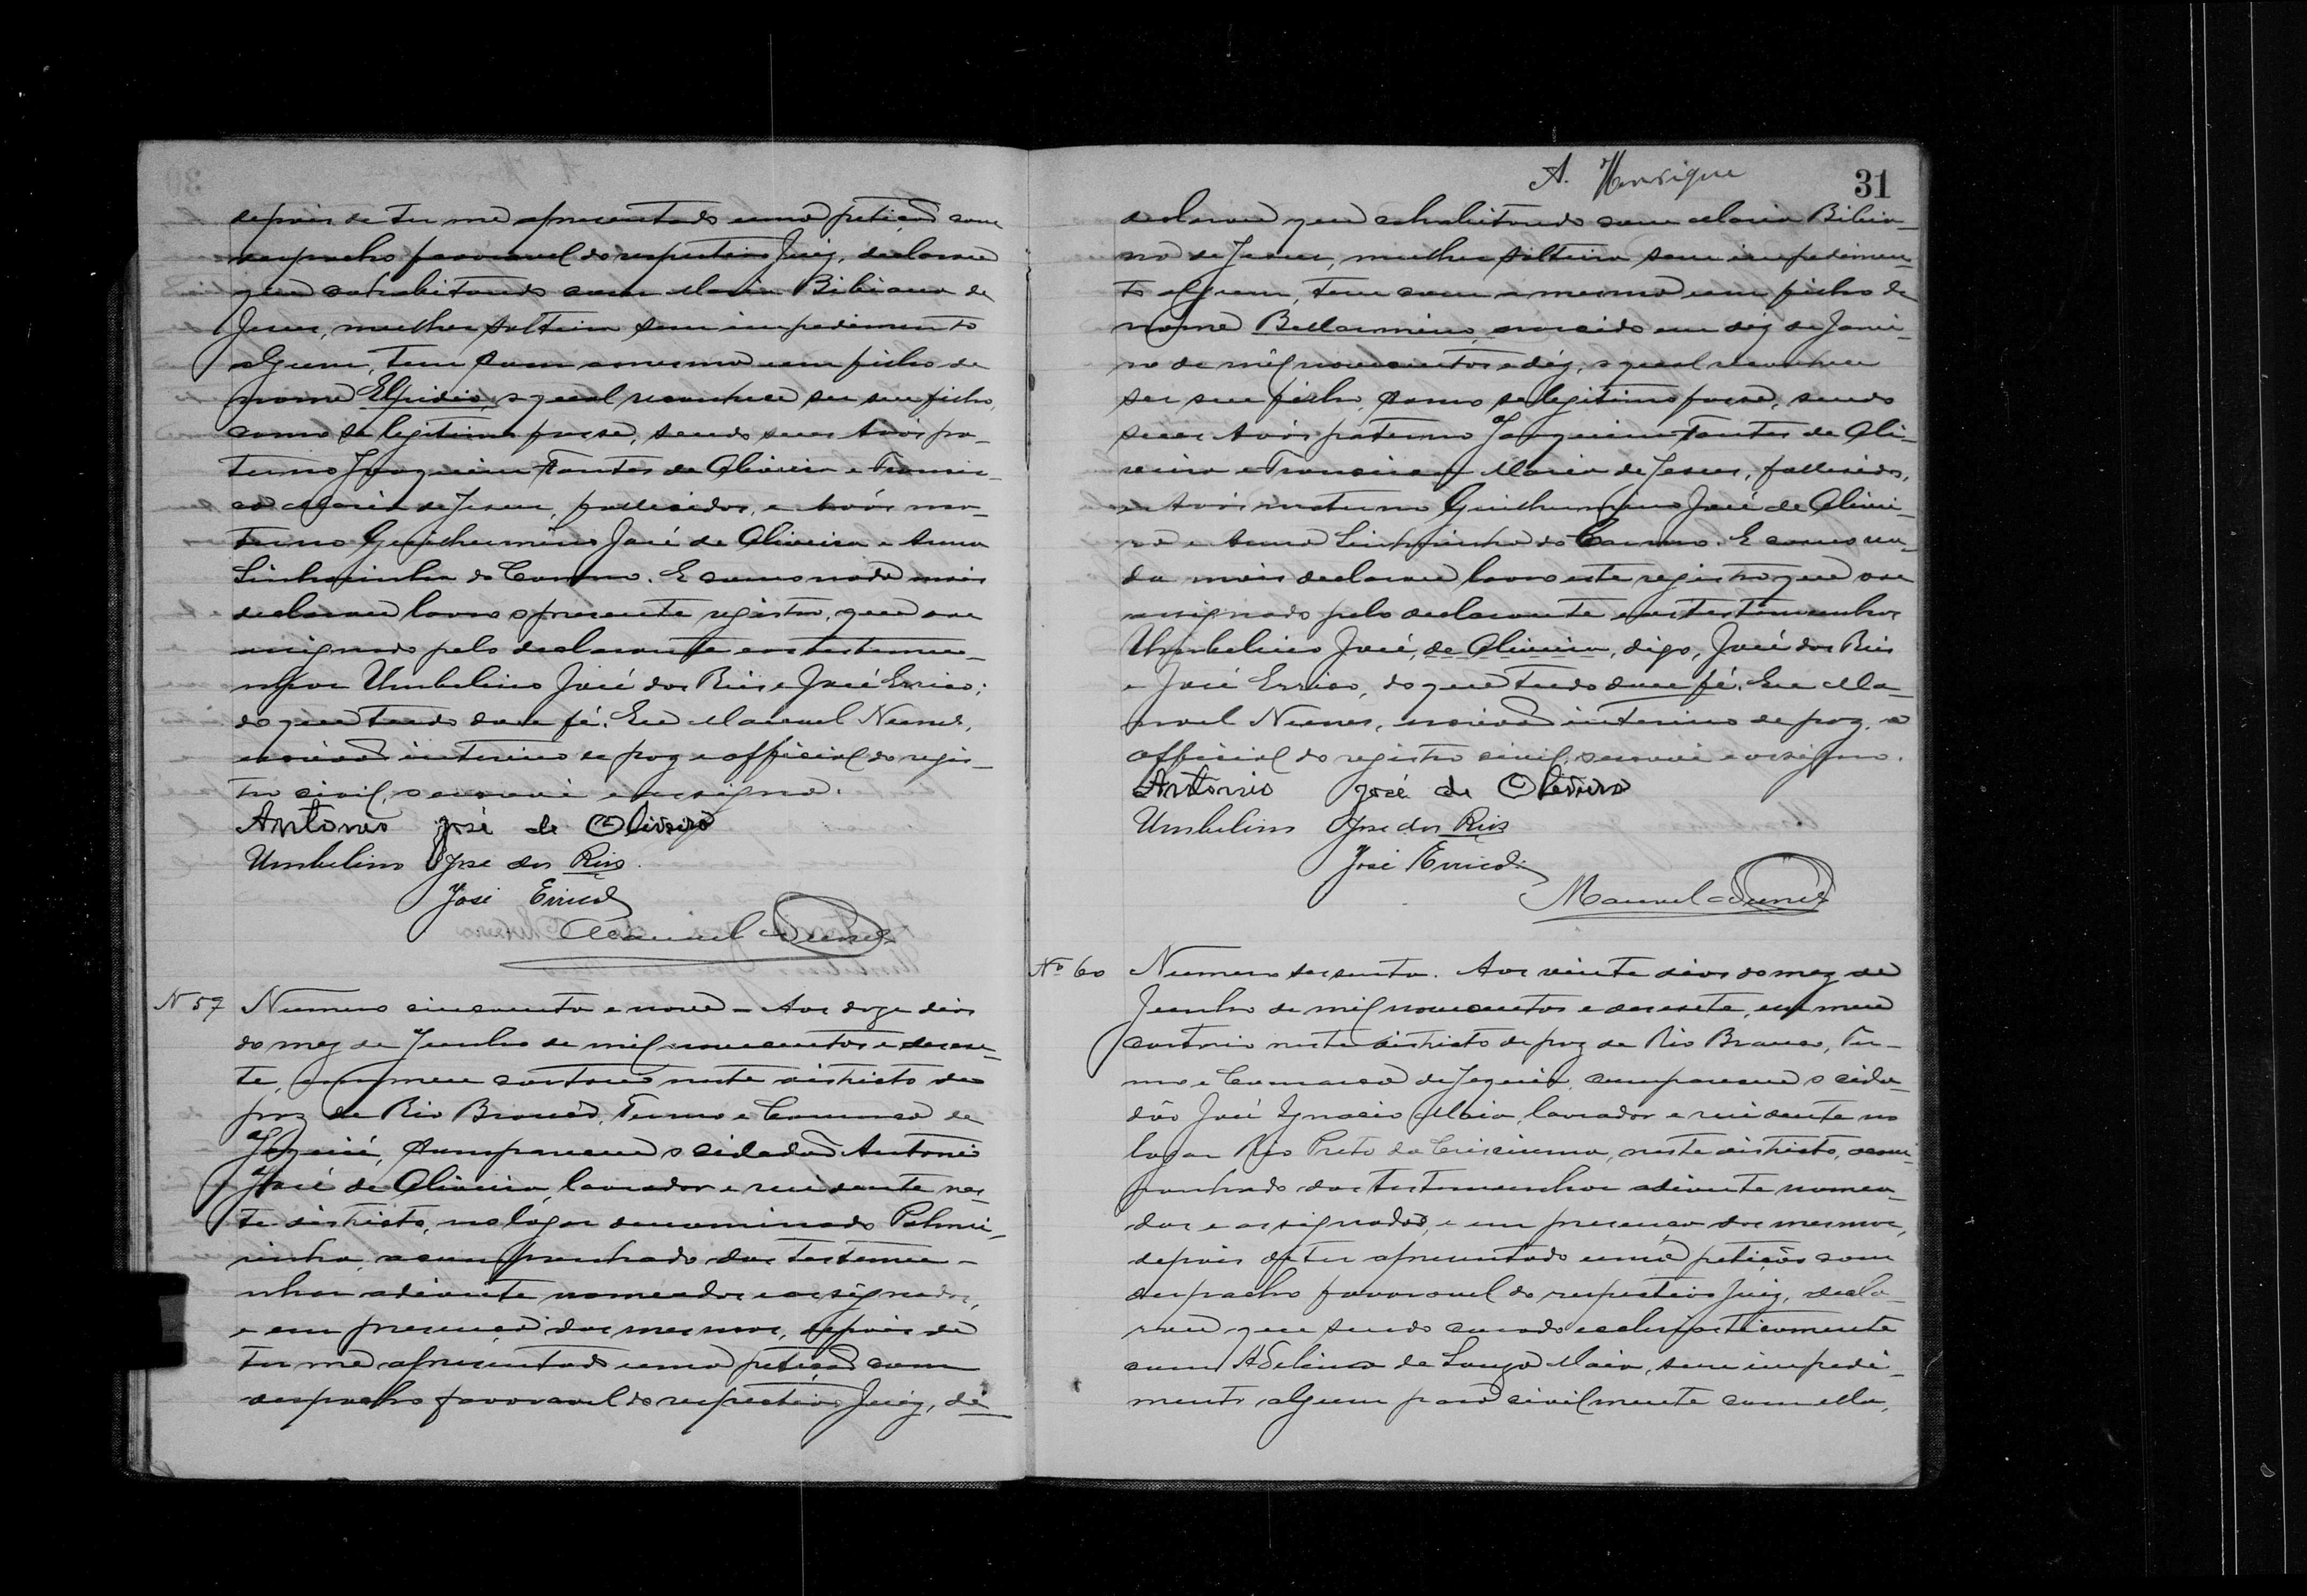 depois de ter me apresentado uma petição com
despacho favoravel do respectivo Juiz, declarou
que cohabitando com Maria Bibiana de
Jesus, mulher solteira sem impedimento
algum, tem com a mesma um filho de
nome Elpidio, o qual reconhece ser seu filho,
como se legitimo fosse, sendo seus Avós pa-
terno Joaquim Fontes de Oliveira e Francis-
ca Maria de Jesus, fallecidos, e Avós ma-
terno Guilhermino José de Oliveira e Anna
Sinhorinha do Carmo. E como nada mais
declarou lavro o presente registro, que vae
assignado pelo declarante e as testemu-
nhas Umbelino José dos Reis e José Errico;
do que tudo dou fé. Eu Manoel Nunes,
escrivão interino de paz e official do regis-
tro civil, o escrevi e assigno.
Antonio José de Oliveira
Umbelino José dos Reis.
José Errico
Manuel Nunes
N 59 Numero cincoenta e nove - Aos doze dias
do mez de Junho de mil novecentos e dezese-
te, em meu cartorio neste districto de
paz de Rio Branco, Termo e Comarca de
Jequié, compareceu o cidadão Antonio
José de Oliveira, lavrador e residente nes-
te districto, no lógar denominado Palmei-
rinha, acompanhado das testemu-
nhas adiante nomeadas e assignadas,
e em presença das mesmas, depois de
ter me apresentado uma petição com
despacho favoravel do respectivo Juiz, de
A. Henrique
31
declarou que cohabitando com Maria Bibia-
na de Jesus, mulher solteira sem impedimen-
to algum, tem com a mesma um filho de
nome Bellarmino, nascido em dez de Janei-
ro de mil novecentos e dez, o qual reconhece
ser seu filho, como se legitimo fosse, sendo
seus Avós paterno Joaquim Fontes de Oli-
veira e Francisca Maria de Jesus, fallecidos,
e Avós materno Guilhermino José de Olivei-
ra e Anna Sinhorinha do Carmo. E como na-
da mais declarou lavro este registro que vae
assignado pelo declarante e as testemunhas
Umbelino José, de Oliveira, digo, José dos Reis
e José Errico, do que tudo dou fé. Eu Ma-
noel Nunes, escrivão interino de paz e
official do registro civil, o escrevi e assigno.
Antonio José de Oliveira
Umbelino José dos Reis
José Errico
Manuel Nunes
Nº 60 Numero sessenta. Aos vinte dias do mez de
Junho de mil novecentos e dezesete, em meu
cartorio neste districto de paz de Rio Branco, Ter-
mo e Comarca de Jequié, compareceu o cida-
dão José Ignacio Maia, lavrador e residente no
logar Rio Preto da Criciuma, neste districto, acom-
panhado das testemunhas adiante nomea-
das e assignadas, e em presença das mesmas,
depois de ter apresentado uma petição com
despacho favoravel do respectivo Juiz, decla-
rou que sendo casado ecclesiasticamente
com Adelina de Souza Maia, sem impedi-
mento algum para civilmente com ella,